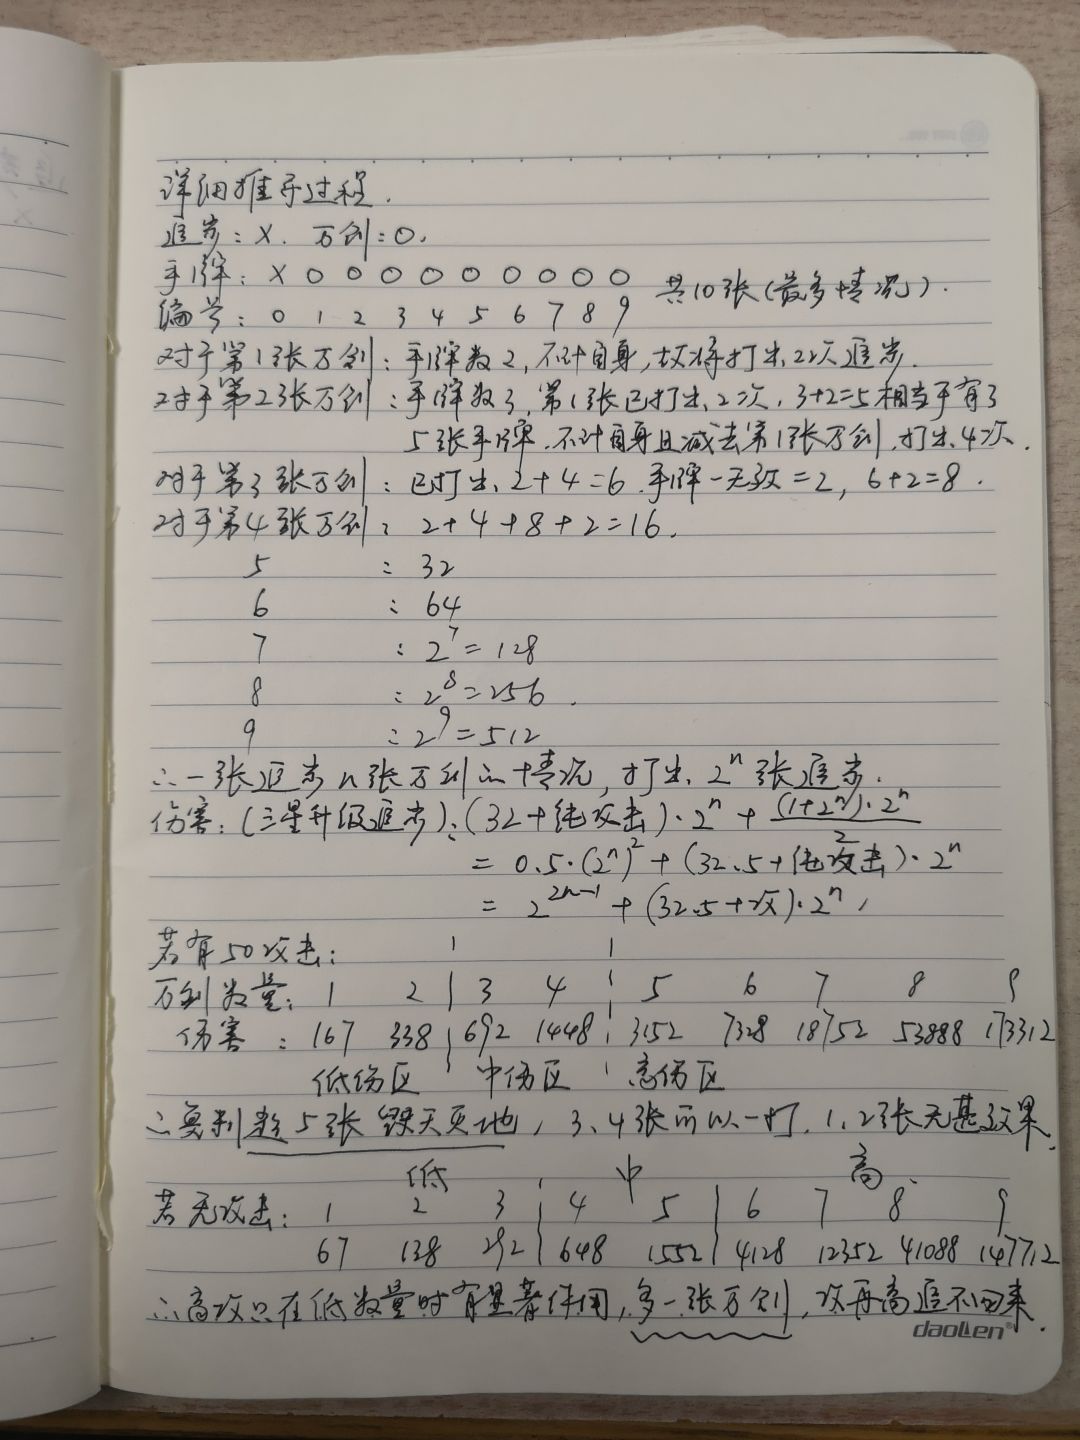 详细推导过程.
追步: X. 万剑: O.
手牌: X O O O O O O O O O 共10张(最多情况).
编号: 0 1 2 3 4 5 6 7 8 9
对于第1张万剑: 手牌数2, 不计自身, 故将打出2次追步.
对于第2张万剑: 手牌数3, 第1张已打出2次, 3+2=5相当于有了
5张手牌. 不计自身且减去第1张万剑, 打出4次.
对于第3张万剑: 已打出2+4=6 手牌-无效=2, 6+2=8.
对于第4张万剑: 2+4+8+2=16.
5 : 32
6 : 64
7 : 2^7=128
8 : 2^8=256.
9 : 2^9=512
∴一张追步n张万剑的情况, 打出2^n张追步.
伤害: (三星升级追步): (32+纯攻击)·2^n + (1+2^n)·2^n/2
= 0.5·(2^n)^2 + (32.5+纯攻击)·2^n
= 2^{2n-1} + (32.5+攻)·2^n,
若有50攻击:
万剑数量: 1 2 3 4 5 6 7 8 9
伤害: 167 338 692 1448 3152 7328 18752 53888 173312
低伤区 中伤区 高伤区
∴莫剑 5张 毁天灭地, 3、4张可以一打, 1、2张无甚效果.
低 中 高
若无攻击: 1 2 3 4 5 6 7 8 9
67 138 292 648 1552 4128 12352 41088 147712
∴高攻只在低数量时有显著作用, 多一张万剑, 攻再高追不回来.
daoLen